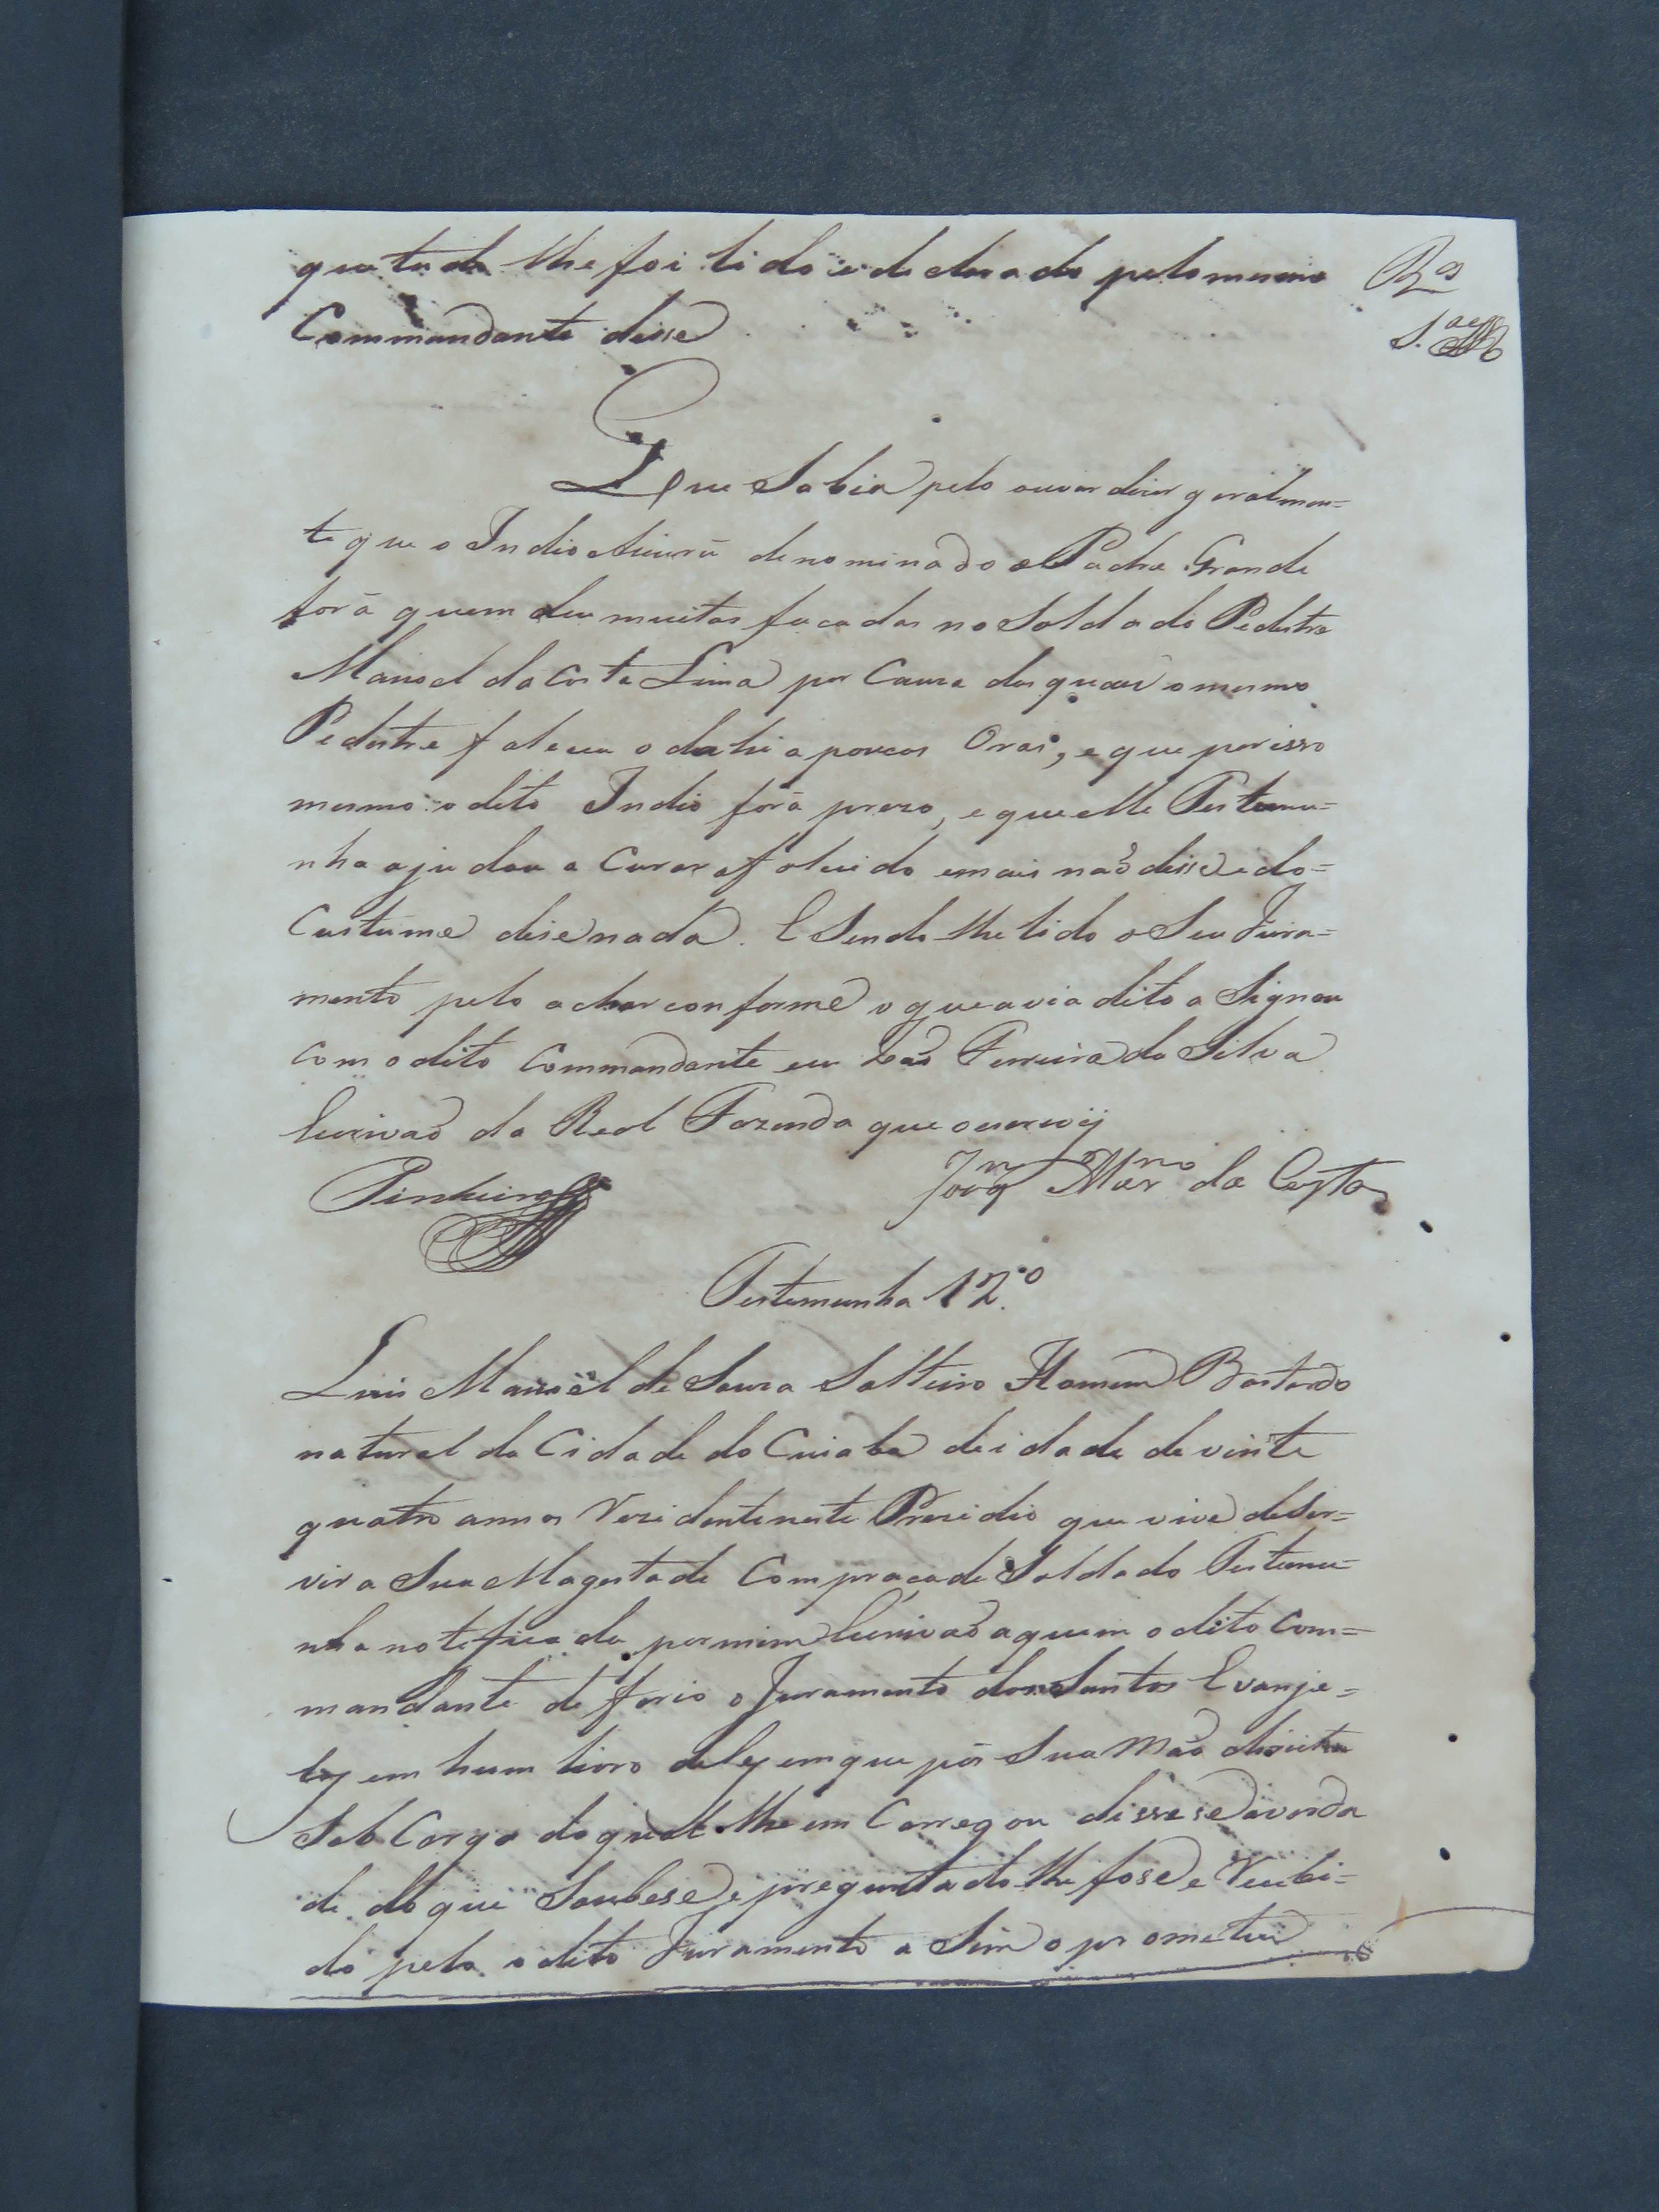 que tudo lhe foi lido e declarado pelo mesmo
Commandante disse
Que Sabia pelo ouvir dizer geralmen=
te que o Indio denominado Padre Grande
forã quem deu muitas facadas no Soldado Pedestre
Manoel da Costa Lima por Cauza das quais o mesmo
Pedestre faleceu o dahi a poucas Oras, e que por isso
mesmo o dito Indio forã prezo, e que elle Testemu=
nha ajudou a Curar o falecido e mais naõ disse e do=
Custume dise nada. E Sendo lhe lido o Seu Jura=
mento pelo achar conforme o que avia dito a Signou
com o dito Commandante eu Joaõ Ferreira da Silva
Escrivaõ da Real Fazenda que o escrevÿ
Pinheiro
Joaq.^m Mar.^no da Costa
Testemunha 12.º
Luis Manoel de Souza Solteiro Homem Bastardo
natural da Cidade do Cuiabá de idade de vinte
quatro annos Rezidente neste Prezidio que vive de Ser=
vir a Sua Magestade Com praça de Soldado Testemu=
nha notificada por mim Escrivaõ a quem o dito Com=
mandante deferio o Juramento dos Santos Evanje=
lhos em hum livro deles em que pôs Sua Maõ direita
Sob Cargo do qual lhe em Carregou dissese a verda
de do que Soubese e preguntado lhe fose e Recebi=
do pelo o dito Juramento a Sim o prometeu